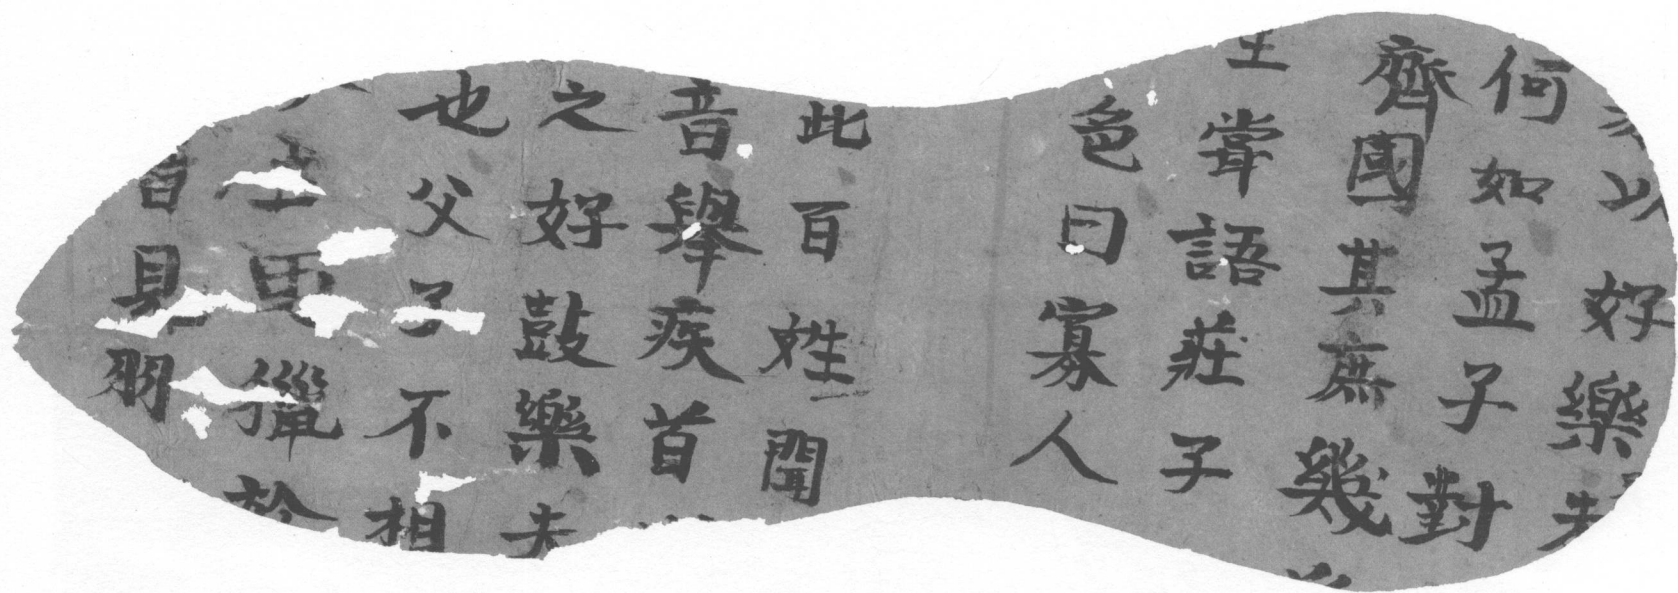 以好樂未
何如孟子對
齊國其庶幾
王甞語莊子
色曰寡人
此百姓聞
音舉疾首
之好鼓樂夫
也父子不相
王田獵於
音見羽